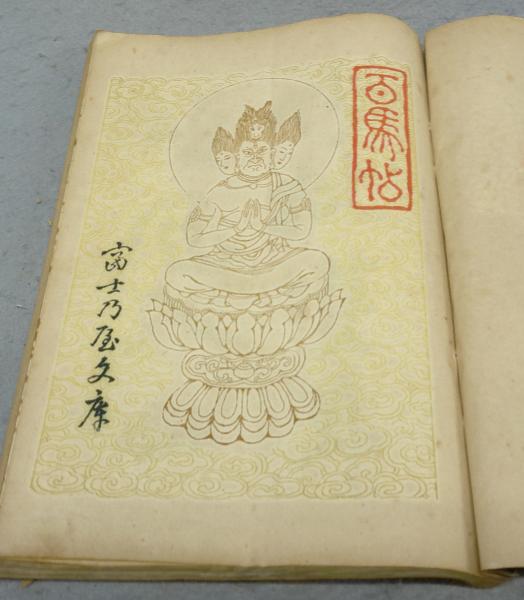 百馬帖
富士乃屋文庫